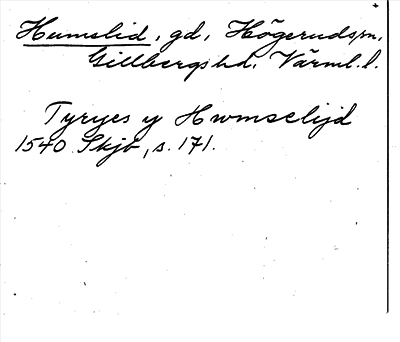 Humslid, gd, Högerudsm.
Gillbergs hd. Värml. l.
Tyryes y Hwmselijd
1540 Skjb, s. 171.